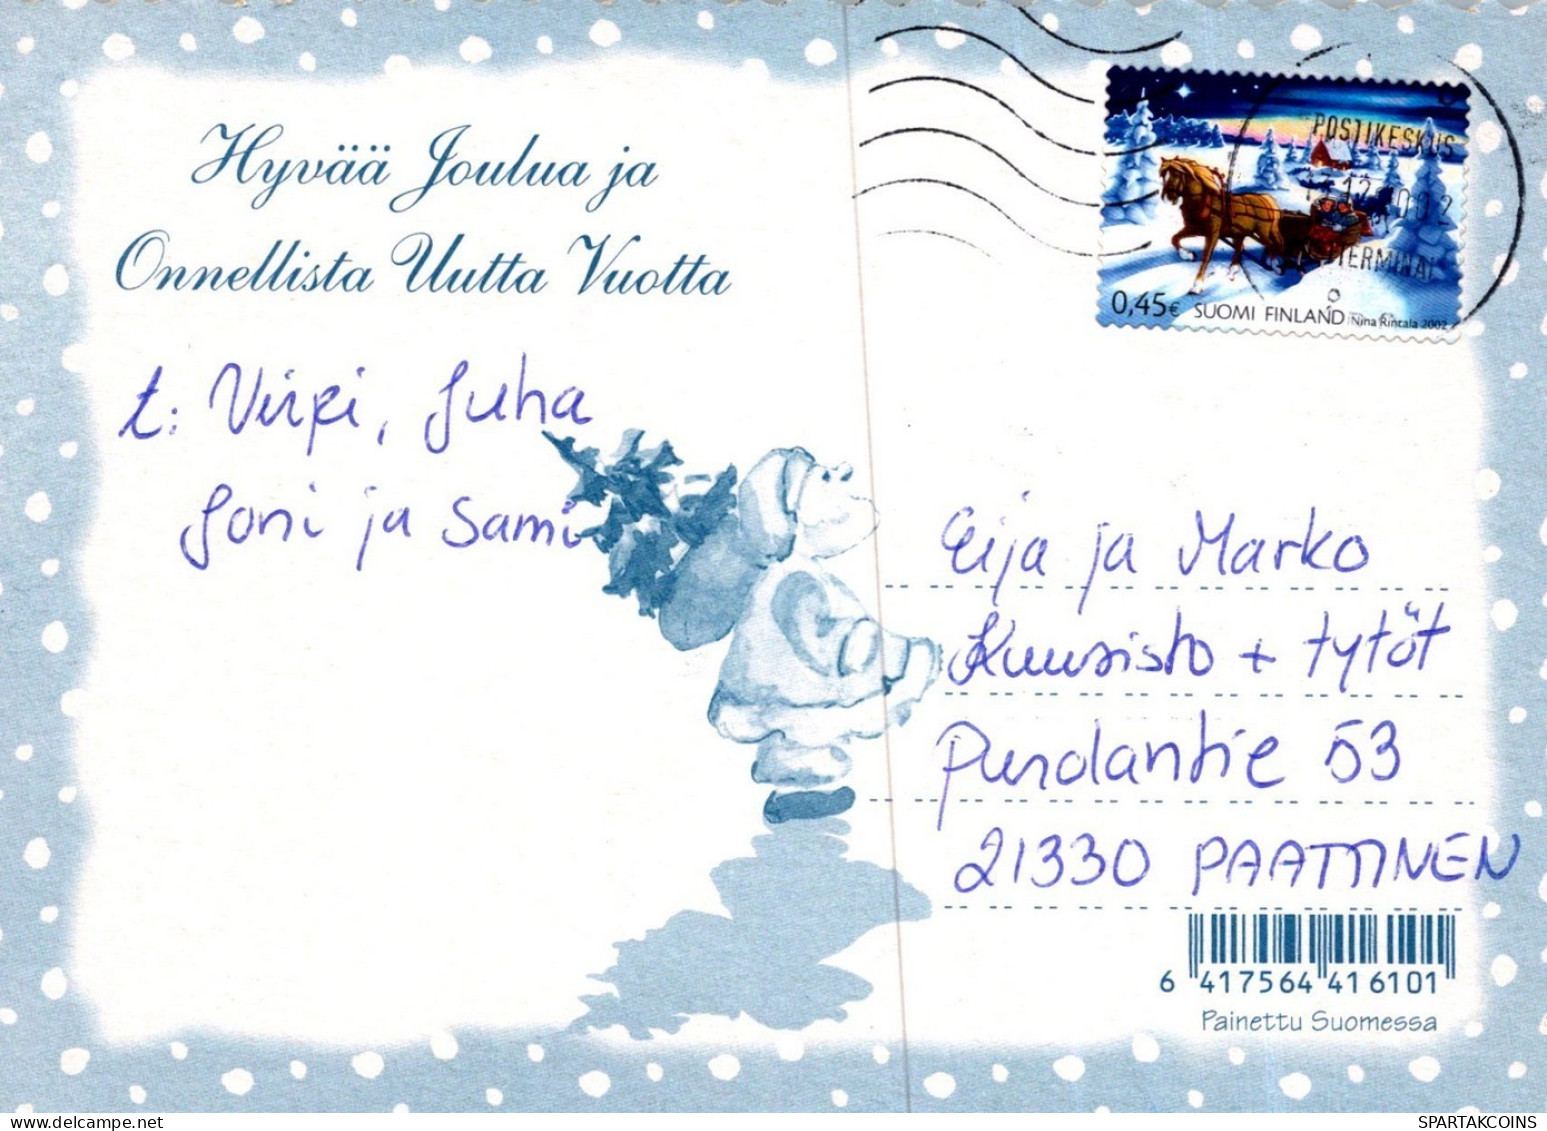 Hyvää Joulua ja
Onnellista Uutta Vuotta
t: Virpi, Juha
Joni ja Sami
POSTIKESKUS
TERMINAL
0,45€ SUOMI FINLAND Nina Rintala 2002
Eija ja Marko
Kuusisto + tytöt
Purolantie 53
21330 PAATTINEN
6 417564 416101
Painettu Suomessa
SPARTAKCOINS